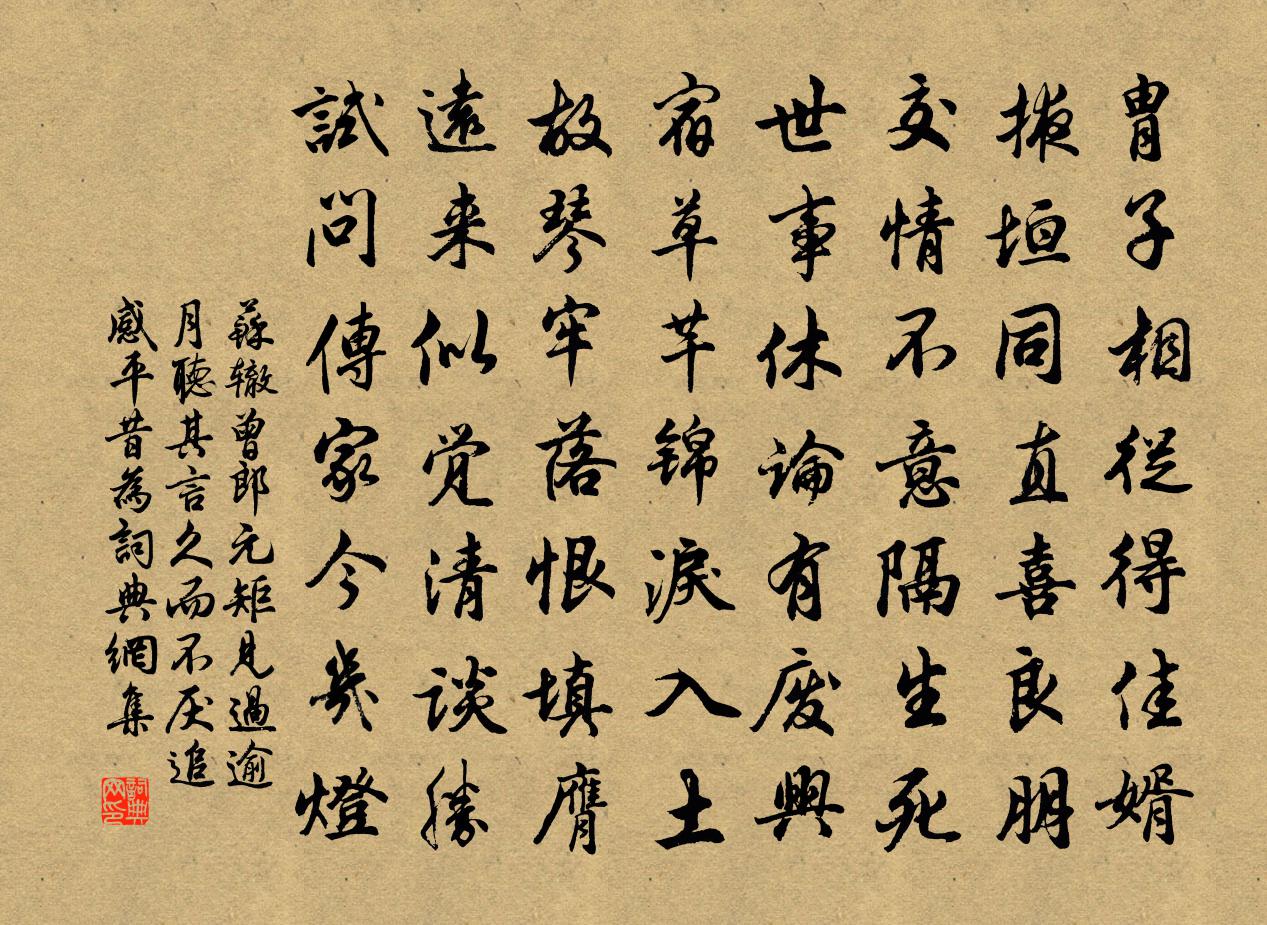 胄子相從得佳婿
掖垣同直喜良朋
交情不意隔生死
世事休論有废興
宿草芊锦淚入土
故琴牢落恨填膺
遠来似觉清談勝
試問傳家今幾燈
蘇辙曾郎元矩見過逾
月聽其言久而不厌追
感平昔為詞典網集
詞典网印